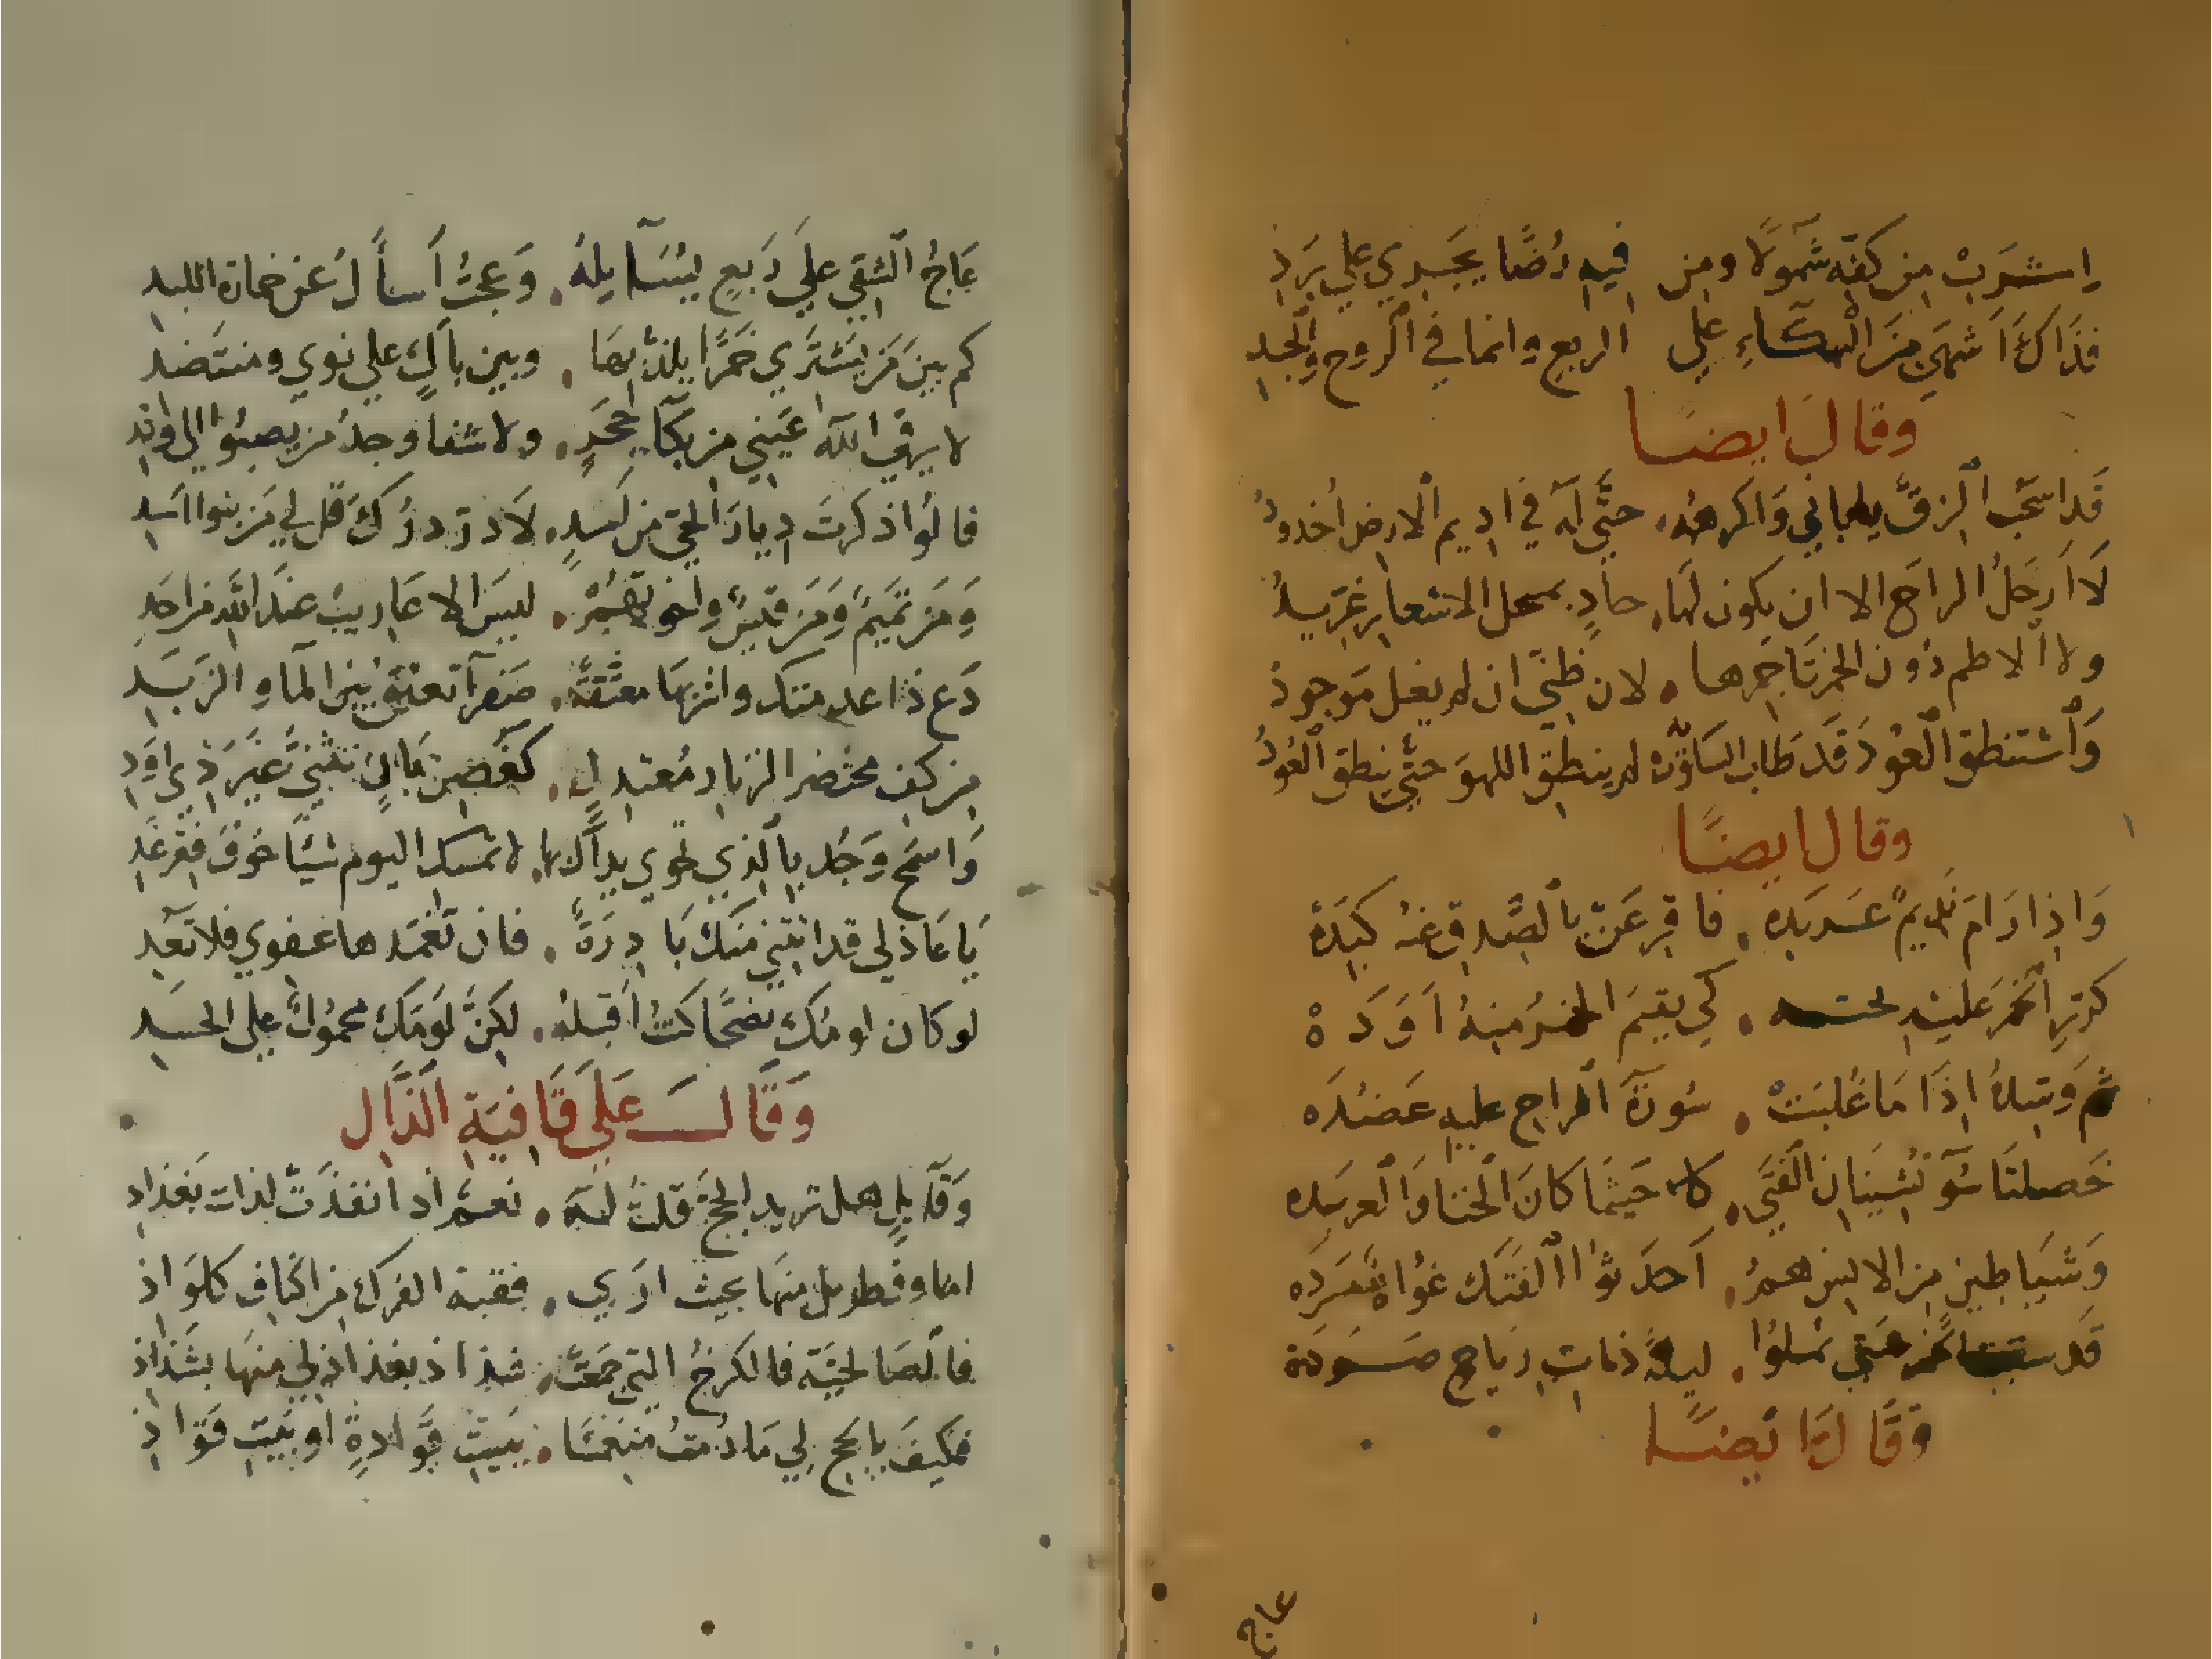 اشرب من كفه شمولا ومن فيه رضا يجري علي برد
فذاك اشهي من البكاء علي الربع وانما في الروح والجسد
وقال ايضا
قد اسحب الزق يابابي واكرهه، حتي له في اديم الارض اخدود
لا ارحل الراح الا ان يكون لها، حاد بمنحل الاشعار غريد
ولا الاطم دون الخمر تاجرها، لان ظني ان لم يغل موجود
واستنطق العود قد طاب السكوت به لم ينطق اللهو حتي ينطق العود
وقال ايضا
واذا رام نديم عربده، فاقرعن بالصدف عنه كبده
كرر الخمر عليه، كي يقيم الخمر منه اوده
ثم وسده اذا ما غلبت، سورة الراح عليه عضده
خصلتا سو تشينان الفتي، كلما حيثما كان الخنا والعربده
وشياطين من الانس هم، احدثوا الفتك غواة مرده
قد، ليلة ذات رياح صرده
وقال ايضا
عاج
عاج الشقي علي ربع يسايله، وعجت اسأل عن خمارة البلد
كم بين من يشتري خمرا يلذ بها، وبين باك علي نوي ومنتضد
لا يرقي الله عيني من بكا حجر، ولا شفا وجد من يصبوا الي وتد
قالوا ذكرت ديار الحي من اسد، لا در درك قل لي من بنوا اسد
ومن تميم ومن قيس واخوتهم، ليس الاعاريب عند الله من احد
دع ذا عدمتك واشربها معتقة، صفرا تعنق بين الما والزبد
من كف مختصر الزنار معتدل، كغصن بان تثني غير ذي اود
واسمح وجد بالذي تحوي يداك لها، لا تمسك اليوم شيا خوف فقر غد
يا عاذلي قد اتتني منك بادرة، فان تغمدها عفوي فلا تعد
لو كان لومك نصحا كنت اقبله، لكن لومك محمول علي الحسد
وقال علي قافية الذال
وقايل هل تريد الحج قلت له، نعم اذا نفدت لذات بغداذ
اما وقطربل منها بحيث اري، فقبة الفرك من اكناف كلواذ
فالصالحية فالكرخ التي جمعت، شذاذ بغداذ لي منها بشذاذ
فكيف بالحج لي ما دمت منغمسا، ببيت قوادة او بيت قواذ